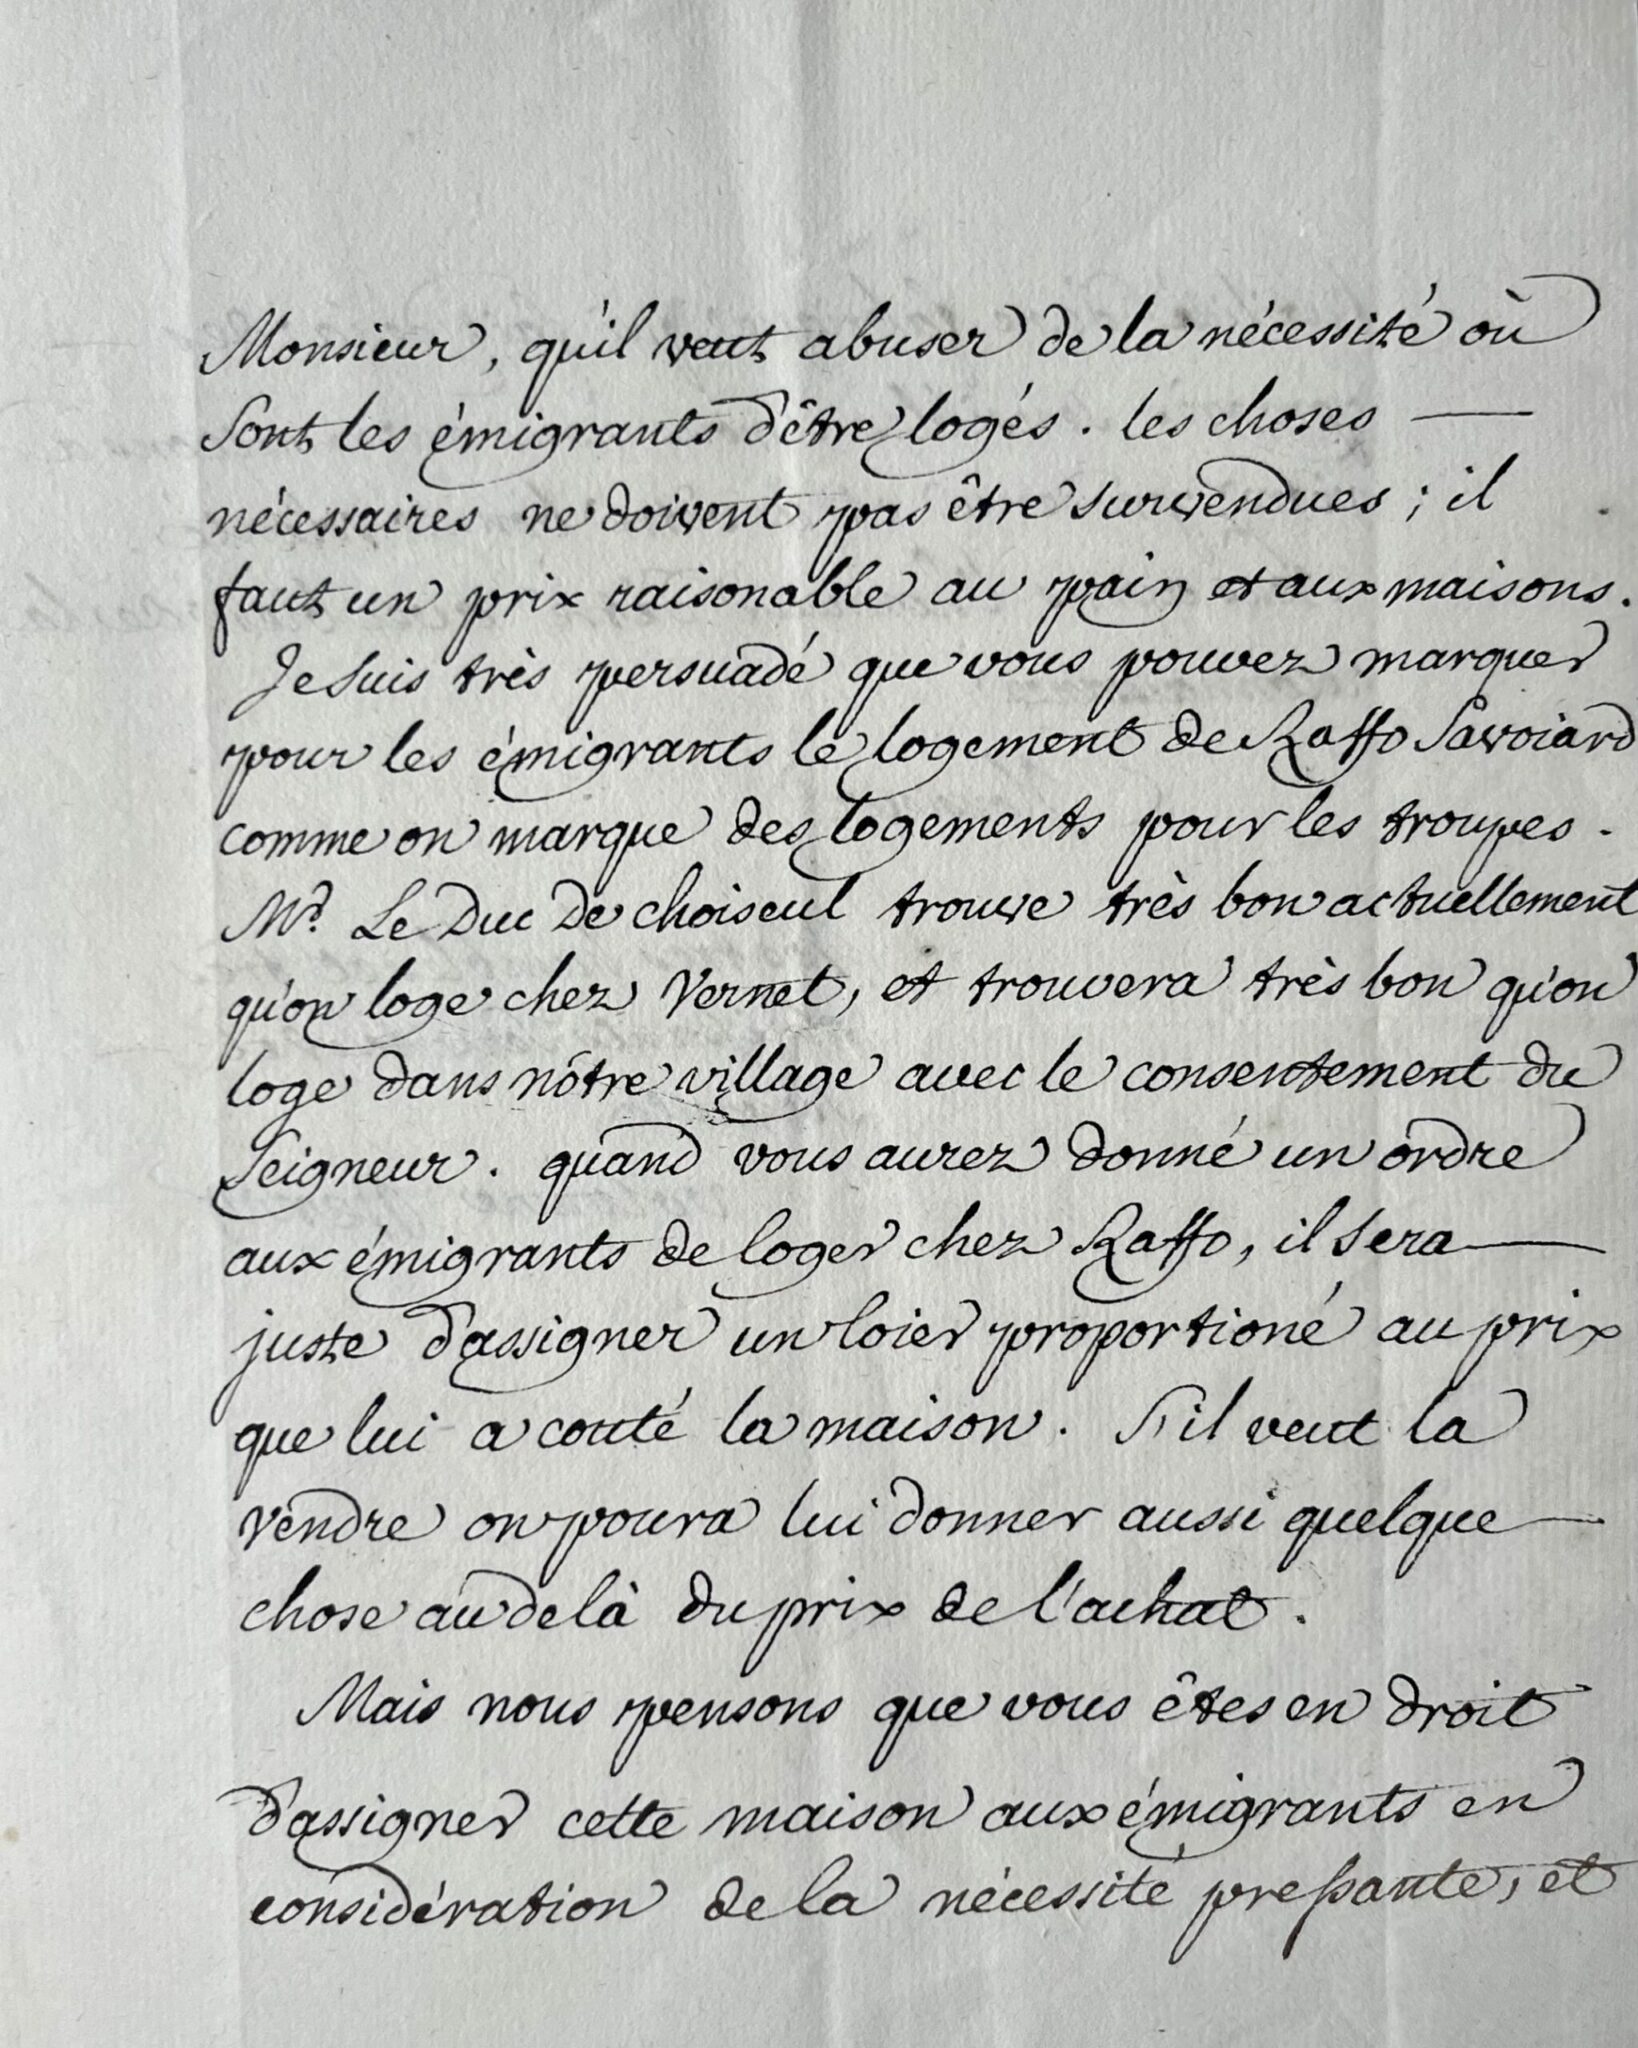 Monsieur, qu'il veut abuser de la nécessité où
sont les émigrants d'être logés. les choses
nécessaires ne doivent pas être survendues; il
faut un prix raisonable au pain et aux maisons.
Je suis très persuadé que vous pouvez marquer
pour les émigrants le logement de Raffo Savoiard
comme on marque des logements pour les troupes.
Mr. Le Duc De choiseul trouve très bon actuellement
qu'on loge chez Vernet, et trouvera très bon qu'on
loge dans nôtre village avec le consentement du
Seigneur. quand vous aurez donné un ordre
aux émigrants de loger chez Raffo, il sera
juste d'assigner un loier proportioné au prix
que lui a couté la maison. S'il veut la
vendre on poura lui donner aussi quelque
chose au delà du prix de l'achat.
Mais nous pensons que vous êtes en droit
d'assigner cette maison aux émigrants en
considération de la nécessité pressante, et